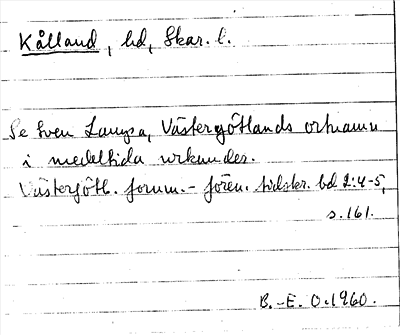 Kålland, hd, Skar. l.
Se Sven Lampa, Västergötlands ortnamn
i medeltida urkunder.
Västergötl. fornm.-fören. tidskr. bd 2:4-5,
s. 161.
B.-E. O. 1960.